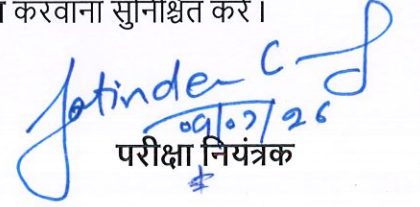 करवाना सुनिश्चित करें।
Jatinder C
09/07/26
परीक्षा नियंत्रक